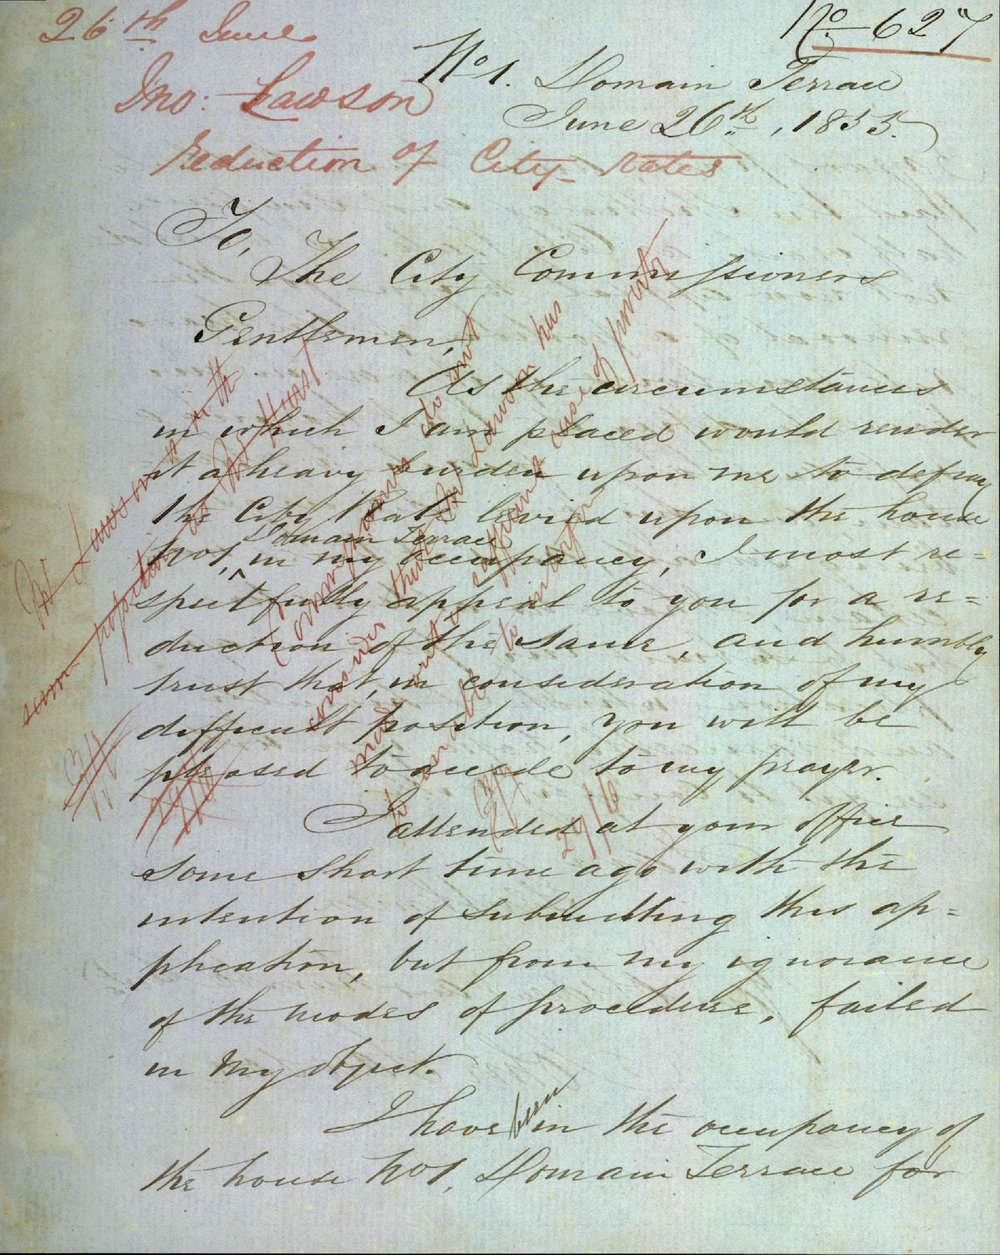 26th June
No 627
Jno: Lawson
reduction of City rates
No 1. Domain Terrace
June 26th, 1855.
To,
The City Commissioners
Gentlemen,
As the circumstances
in which I am placed would render
it a heavy burden upon me to defray
the City Rate levied upon the house
No 1, Domain Terrace in my occupancy, I most re=
spectfully appeal to you for a re=
duction of the same, and humbly
trust that, in consideration of my
difficult position, you will be
pleased to accede to my prayer.
I attended at your office
some short time ago with the
intention of submitting this ap=
plication, but from my ignorance
of the modes of procedure, failed
in my object.
I have been in the occupancy of
the house No 1, Domain Terrace for
Mr Lawson is in the
same
as Mr Hurst
Commissioners do not
consider that Mr Lawson has
made out a sufficient case of poverty
to
on
29/6